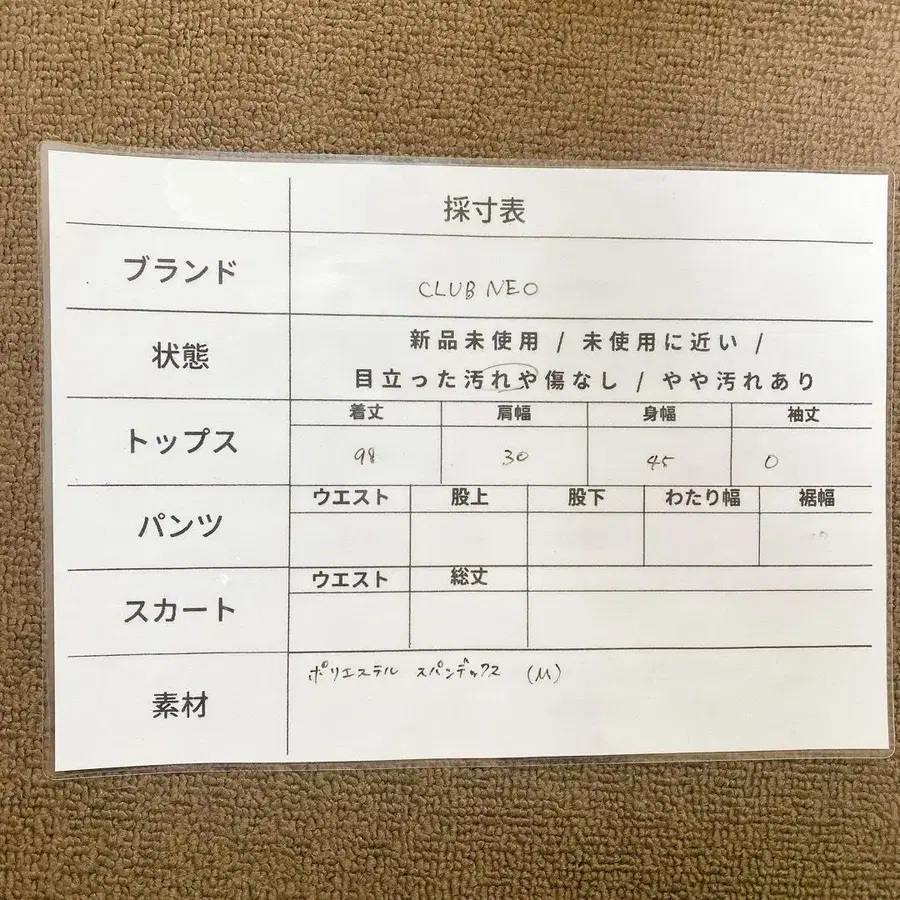 採寸表
ブランド
CLUB NEO
状態
新品未使用 / 未使用に近い /
目立った汚れや傷なし / やや汚れあり
トップス
着丈 肩幅 身幅 袖丈
98 30 45 0
パンツ
ウエスト 股上 股下 わたり幅 裾幅
スカート
ウエスト 総丈
素材
ポリエステル スパンデックス (M)